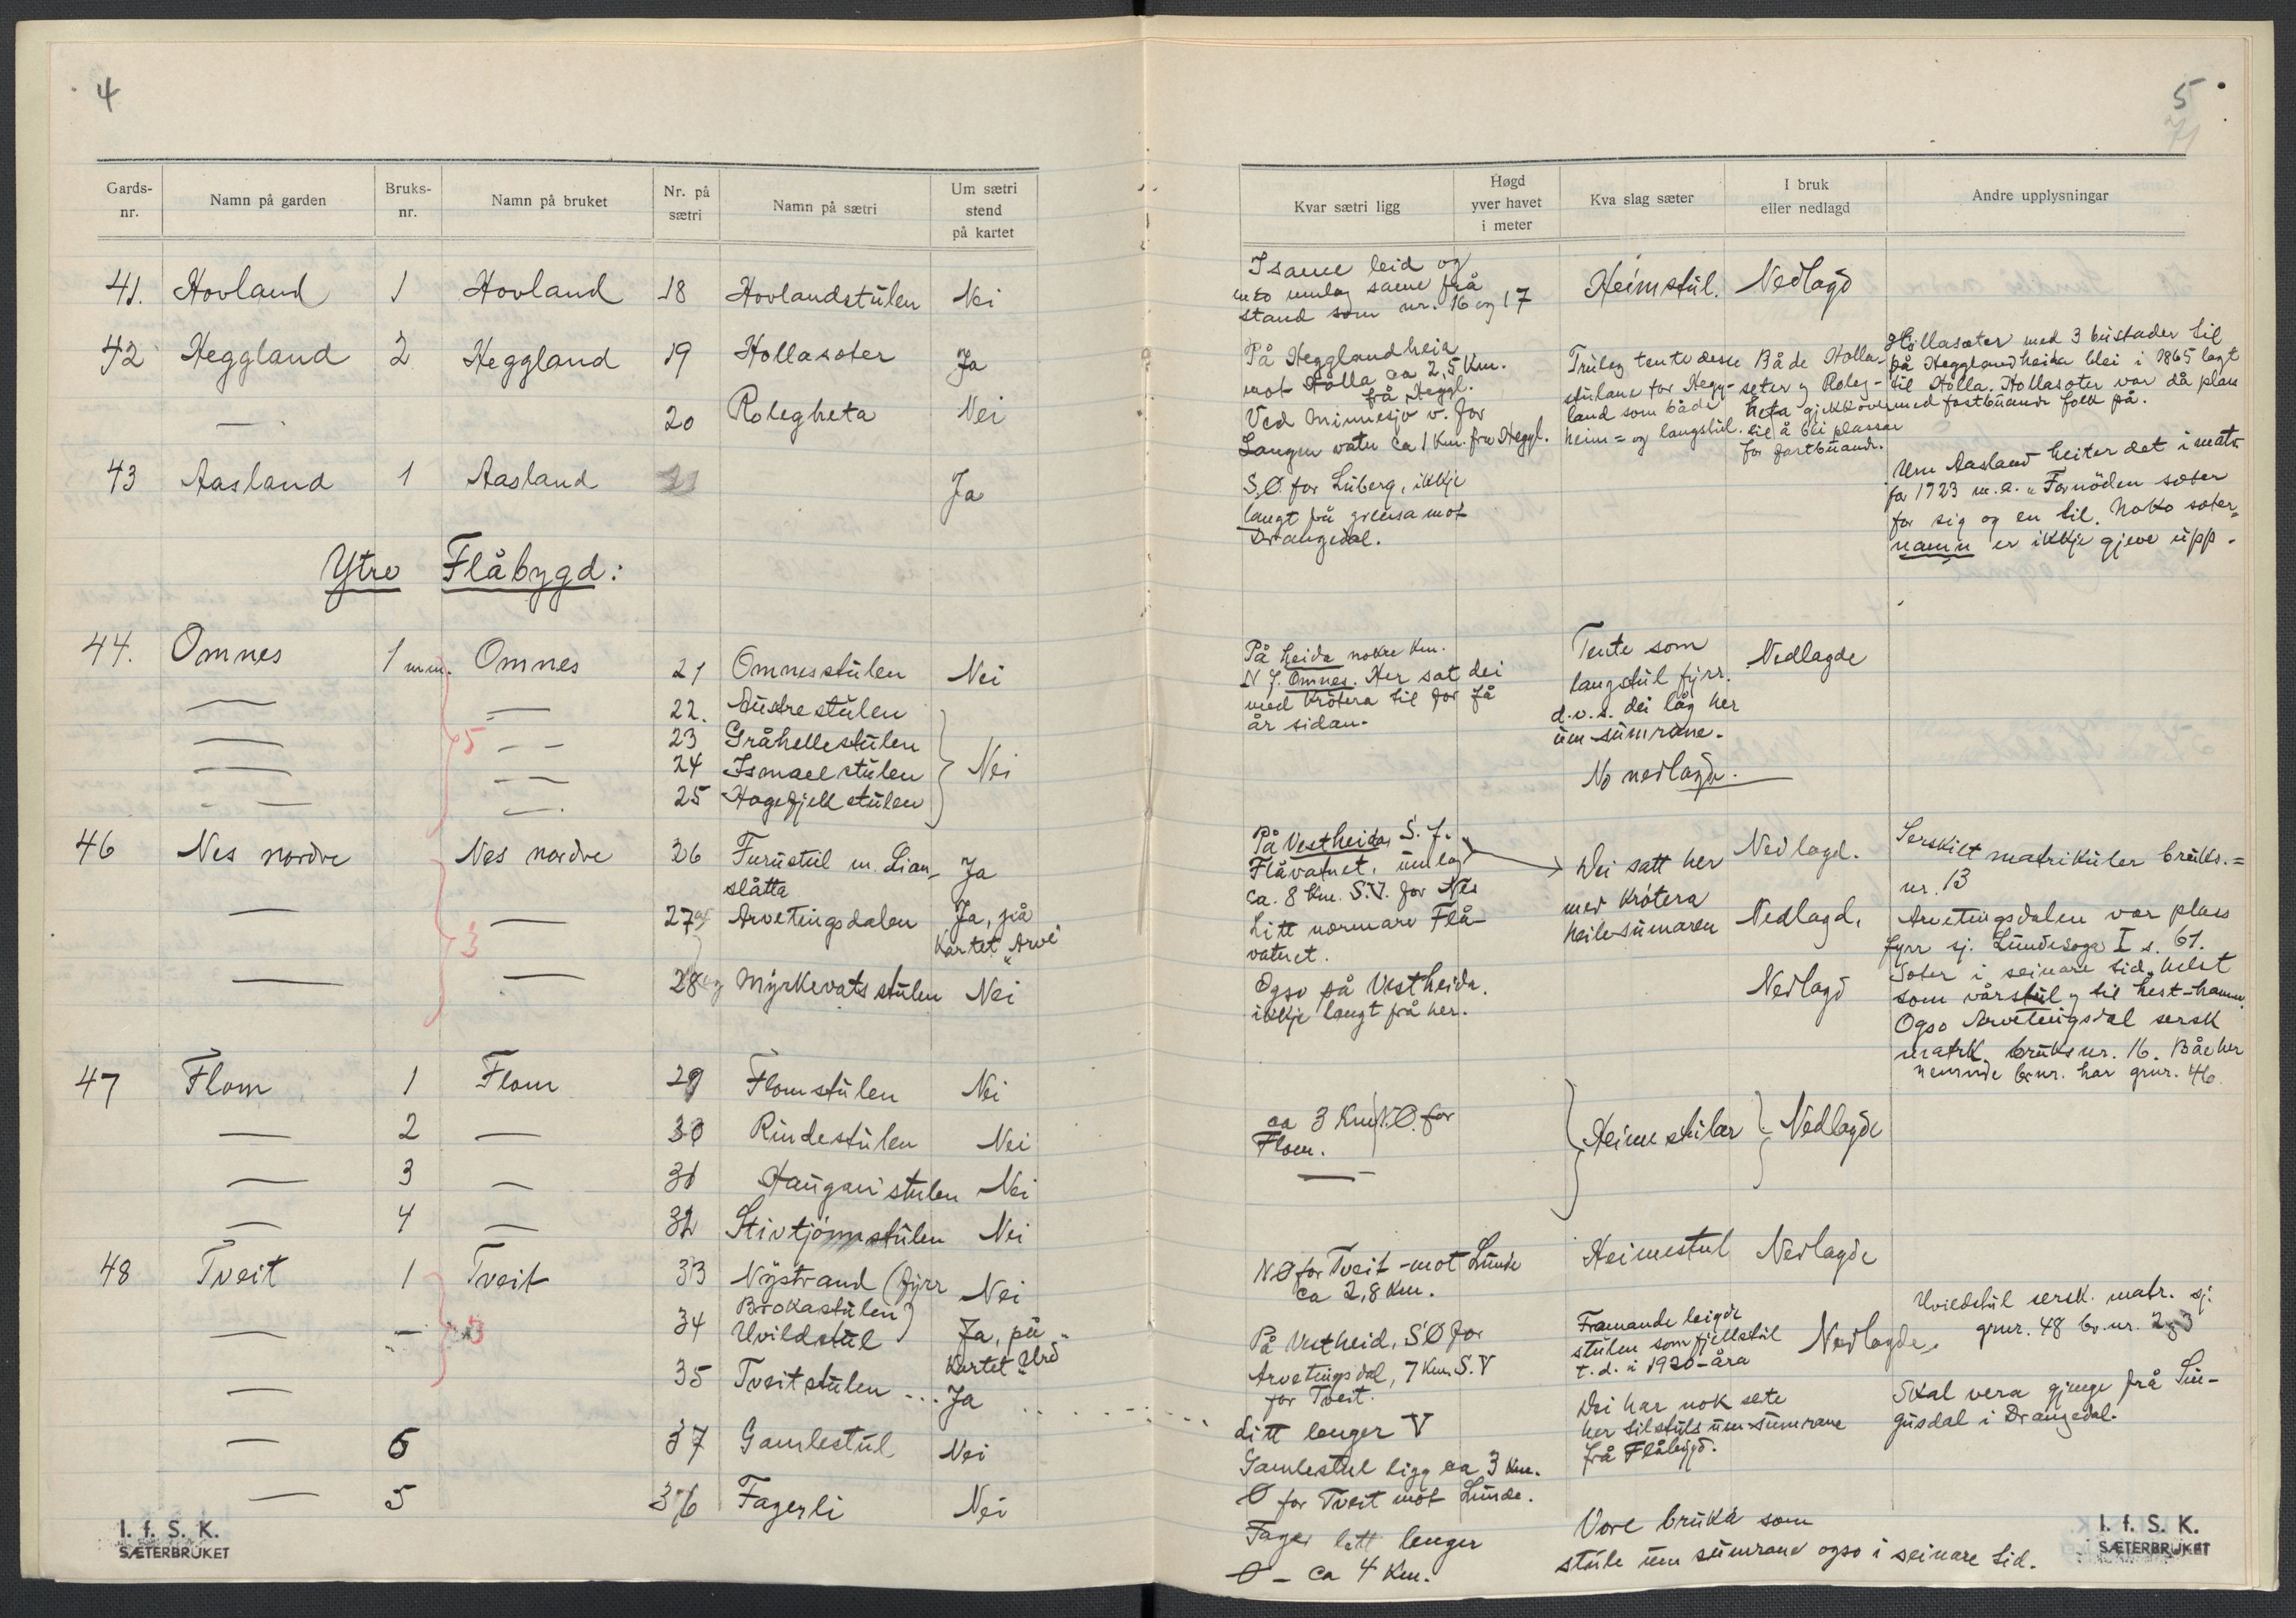 4
Gards-nr. Namn på garden Bruks-nr. Namn på bruket Nr. på sætri Namn på sætri Um sætri stend på kartet
41. Hovland 1 Hovland 18 Hovlandstulen Nei
42 Heggland 2 Heggland 19 Hollasæter Ja
— 20 Rolegheta Nei
43 Aasland 1 Aasland 21 Ja
Ytre Flåbygd:
44. Omnes 1 m.m. Omnes 21 Omnesstulen Nei
— — 22. Austrestulen
— 5 — 23 Gråhellestulen
— — 24 Ismaelstulen Nei
— — 25 Hagefjellstulen
46 Nes nordre Nes nordre 26 Furustul m. Lian-
slåtta Ja
— 3 — 27 og Arvetingsdalen Ja, på
Kartet "Arve"
— — 28 Myrkevatsstulen Nei
47 Flom 1 Flom 29 Flomstulen Nei
— 2 — 30 Rindestulen Nei
— 3 — 31 Hauganstulen Nei
— 4 — 32 Stivtjönnstulen Nei
48 Tveit 1 Tveit 33 Nystrand (fyrr
Brokastulen) Nei
— — 3 34 Uvildstul Ja, på
Kartet "Urd"
— 35 Tveitstulen ... Ja
— 6 37 Gamlestul Nei
— 5 36 Fagerli Nei
I. f. S. K.
SÆTERBRUKET
5
71
Kvar sætri ligg Høgd yver havet i meter Kva slag sæter I bruk eller nedlagd Andre upplysningar
I same leid og
med umlag same frå
stand som nr. 16 og 17
Heimstul. Nedlagd
På Hegglandheia
mot Holla ca 2,5 Km.
frå Heggl.
Ved Minnesjö v. for
Langen vatn ca 1 Km. fra Heggl.
Truleg tente desse
stulane for Hegg-
land som både
heim= og langstul.
Både Holla-
seter og Roleg-
heta gjekk over
til å bli plassar
for fastbuande.
Hollasæter med 3 bustader til
på Hegglandheia blei i 1865 lagt
til Holla. Hollasæter var då plass
med fastbuande folk på.
S.Ø. for Luberg, ikkje
langt frå grensa mot
Drangedal.
Um Aasland heiter det i matr.
for 1723 m.a. "Fornöden sæter
for sig og en til. Noko sæter=
namn er ikkje gjeve upp.
På heida nokre Km.
N f. Omnes. Her sat dei
med Krötera til for få
år sidan.
Tente som
langstul fyrr.
d.v.s. dei låg her
um sumrane.
No nedlagde.
Nedlagde
På Vestheida, S. f.
Flåvatnet, umlag
ca. 8 Km. S.V. for Nes
Litt nærmare Flå-
vatnet.
Ogso på Vestheida.
ikkje langt frå her.
Dei satt her
med Krötera
heile sumaren
Nedlagd.
Nedlagd.
Nedlagd
Serskilt matrikuler bruks.=
nr. 13
Arvetingsdalen var plass
fyrr sj. Lundesoga I s. 61.
Sæter i seinare tid, helst
som vårstul og til hest-hamn.
Ogso Arvetingsdal sersk
matrk. bruksnr. 16. Båe her
nemnde br.nr. har grnr. 46.
ca 3 Km N.Ø. for
Flom.
—
Heimestular Nedlagde
NØ for Tveit - mot Lunde
ca 2,8 Km.
Heimestul Nedlagde
På Vestheid, SØ for
Arvetingsdal, 7 Km. S.V
for Tveit.
Framande leigde
stulen som fjellstul
t.d. i 1920-åra
Nedlagde.
Uvildstul sersk. matr. sj.
grnr. 48 br.nr. 2 og 3
Litt lenger V
Dei har nok sete
her tilstuls um sumrane
frå Flåbygd.
Skal vera gjenge frå Lin-
gusdal i Drangedal.
Gamlestul ligg ca 3 Km.
Ø for Tveit mot Lunde.
Fager litt lenger
Ø - ca 4 Km.
Vore bruka som
stule um sumrane ogso i seinare tid.
I. f. S. K.
SÆTERBRUKET